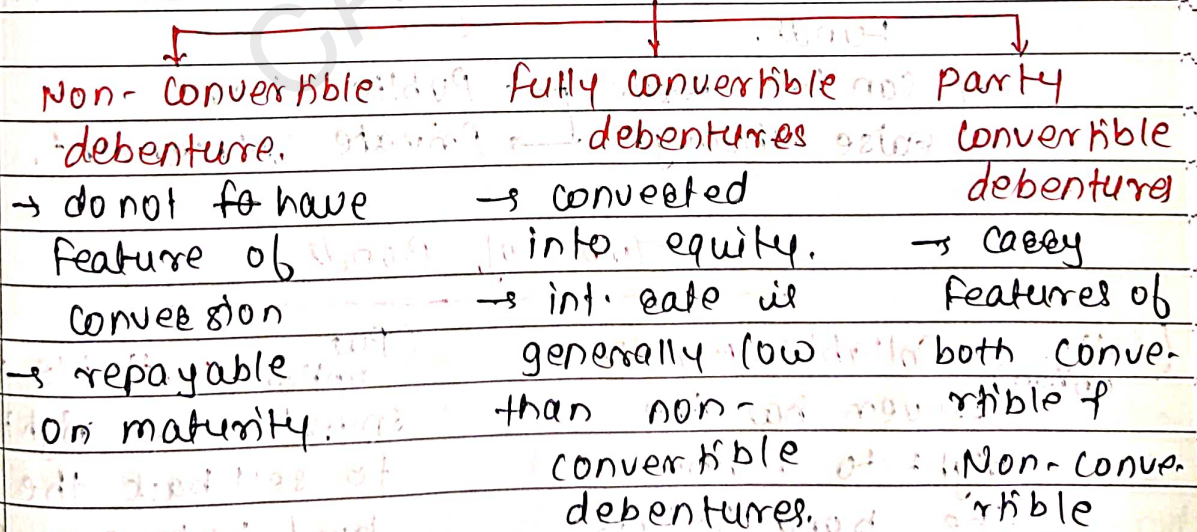 Non-Convertible
debenture.
→ do not have
feature of
conversion
→ repayable
on maturity.
fully convertible
debentures
→ converted
into equity.
→ int. rate is
generally low
than non-
convertible
debentures.
party
convertible
debentures
→ carry
features of
both conve-
rtible &
Non-conve-
rtible